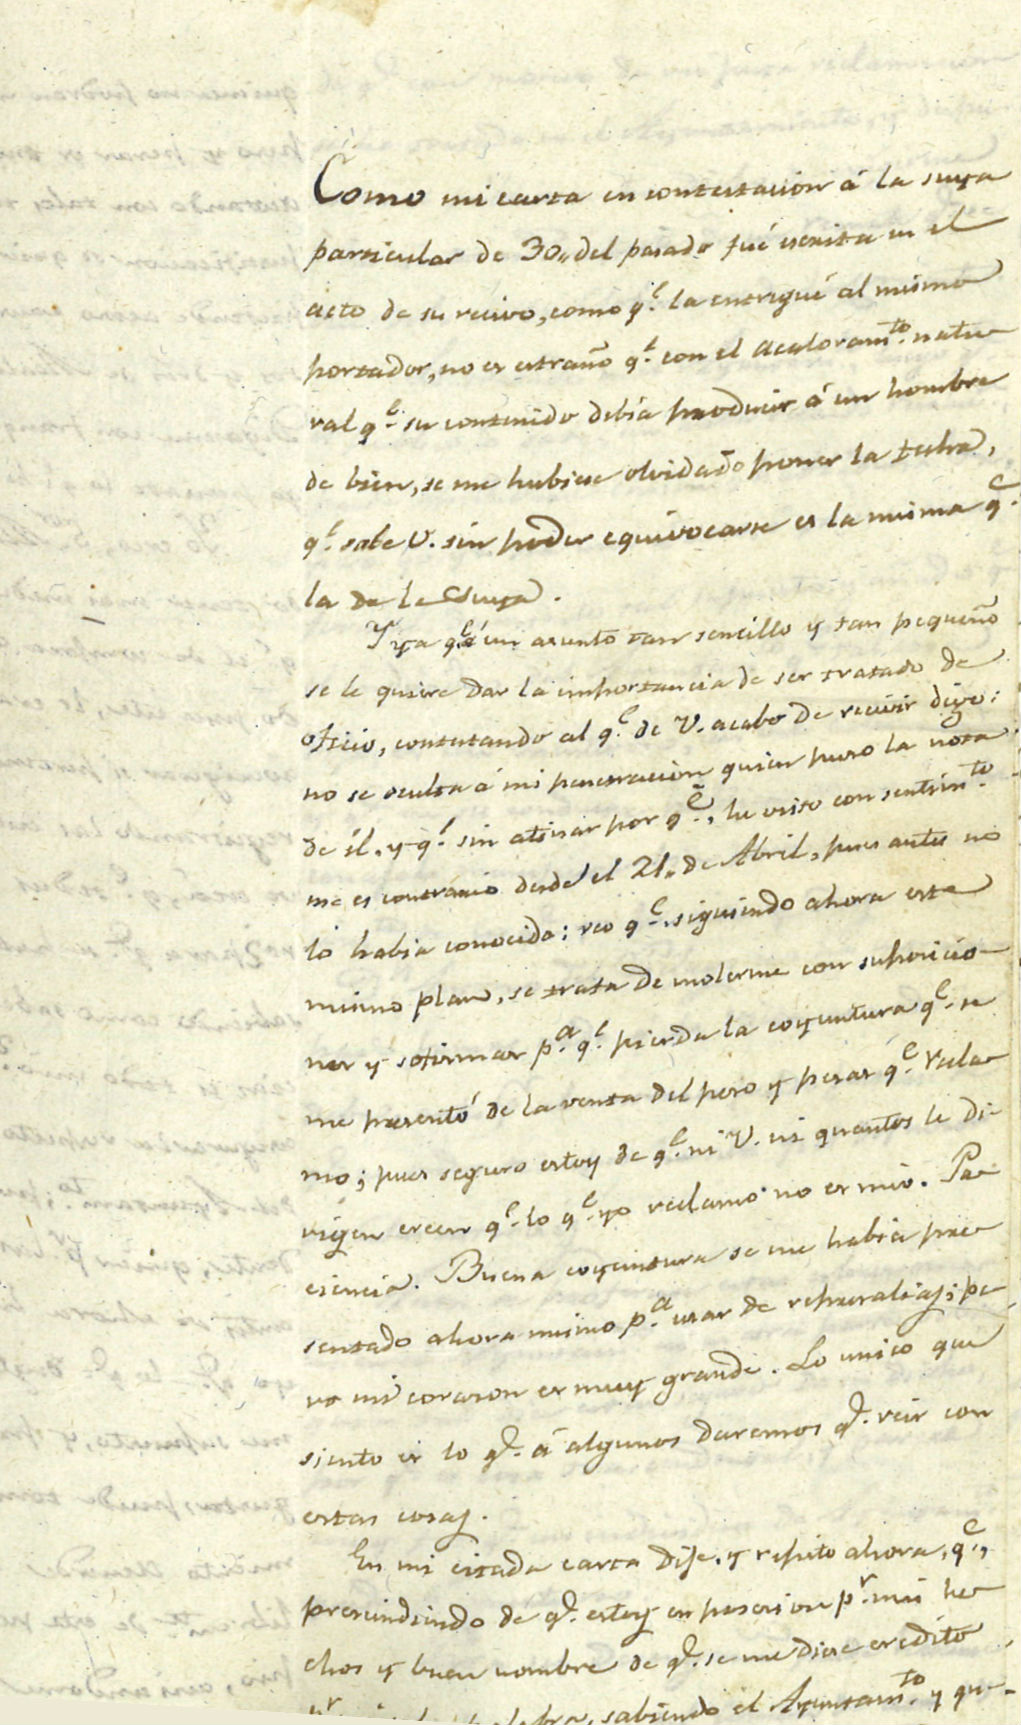 Como mi carta en contestacion á la suya
particular de 30,, del pasado fué escrita en el
acto de su recivo, como q.e la entregué al mismo
portador, no es estraño q.e con el acaloram.to natu-
ral q.e su contenido debia producir á un hombre
de bien, se me hubiese olvidado poner la fecha,
q.e sabe V. sin poder equivocarse es la misma q.e
la de la Suya.
Y ya q.e á un asunto tan sencillo y tan pequeño
se le quiere dar la importancia de ser tratado de
oficio, contestando al q.e de V. acabo de recivir digo:
no se oculta á mi penetracion quien puso la nota
de él, y q.e sin atinar por q.e, he visto con sentim.to
me es contrario desde el 21,, de Abril, pues antes no
lo habia conocido: veo q.e siguiendo ahora este
mismo plan, se trata de molerme con suposicio-
nes y sofismas p.a q.e pierda la coyuntura q.e se
me presentó de la venta del peso y pesas q.e recla-
mo; pues seguro estoy de q.e ni V. ni quantos le di-
rigen creen q.e lo q.e yo reclamo no es mio. Pa-
ciencia. Buena coyuntura se me habia pre-
sentado ahora mismo p.a usar de represalias; pe-
ro mi corazon es muy grande. Lo unico que
siento es lo q.e á algunos daremos q.e reir con
estas cosas.
En mi citada carta dije, y repito ahora, q.e,
prescindiendo de q.e estoy en posesion p.r mis he-
chos y buen nombre de q.e se me diese credito
p.r sabiendo el Ayuntam.to y que-